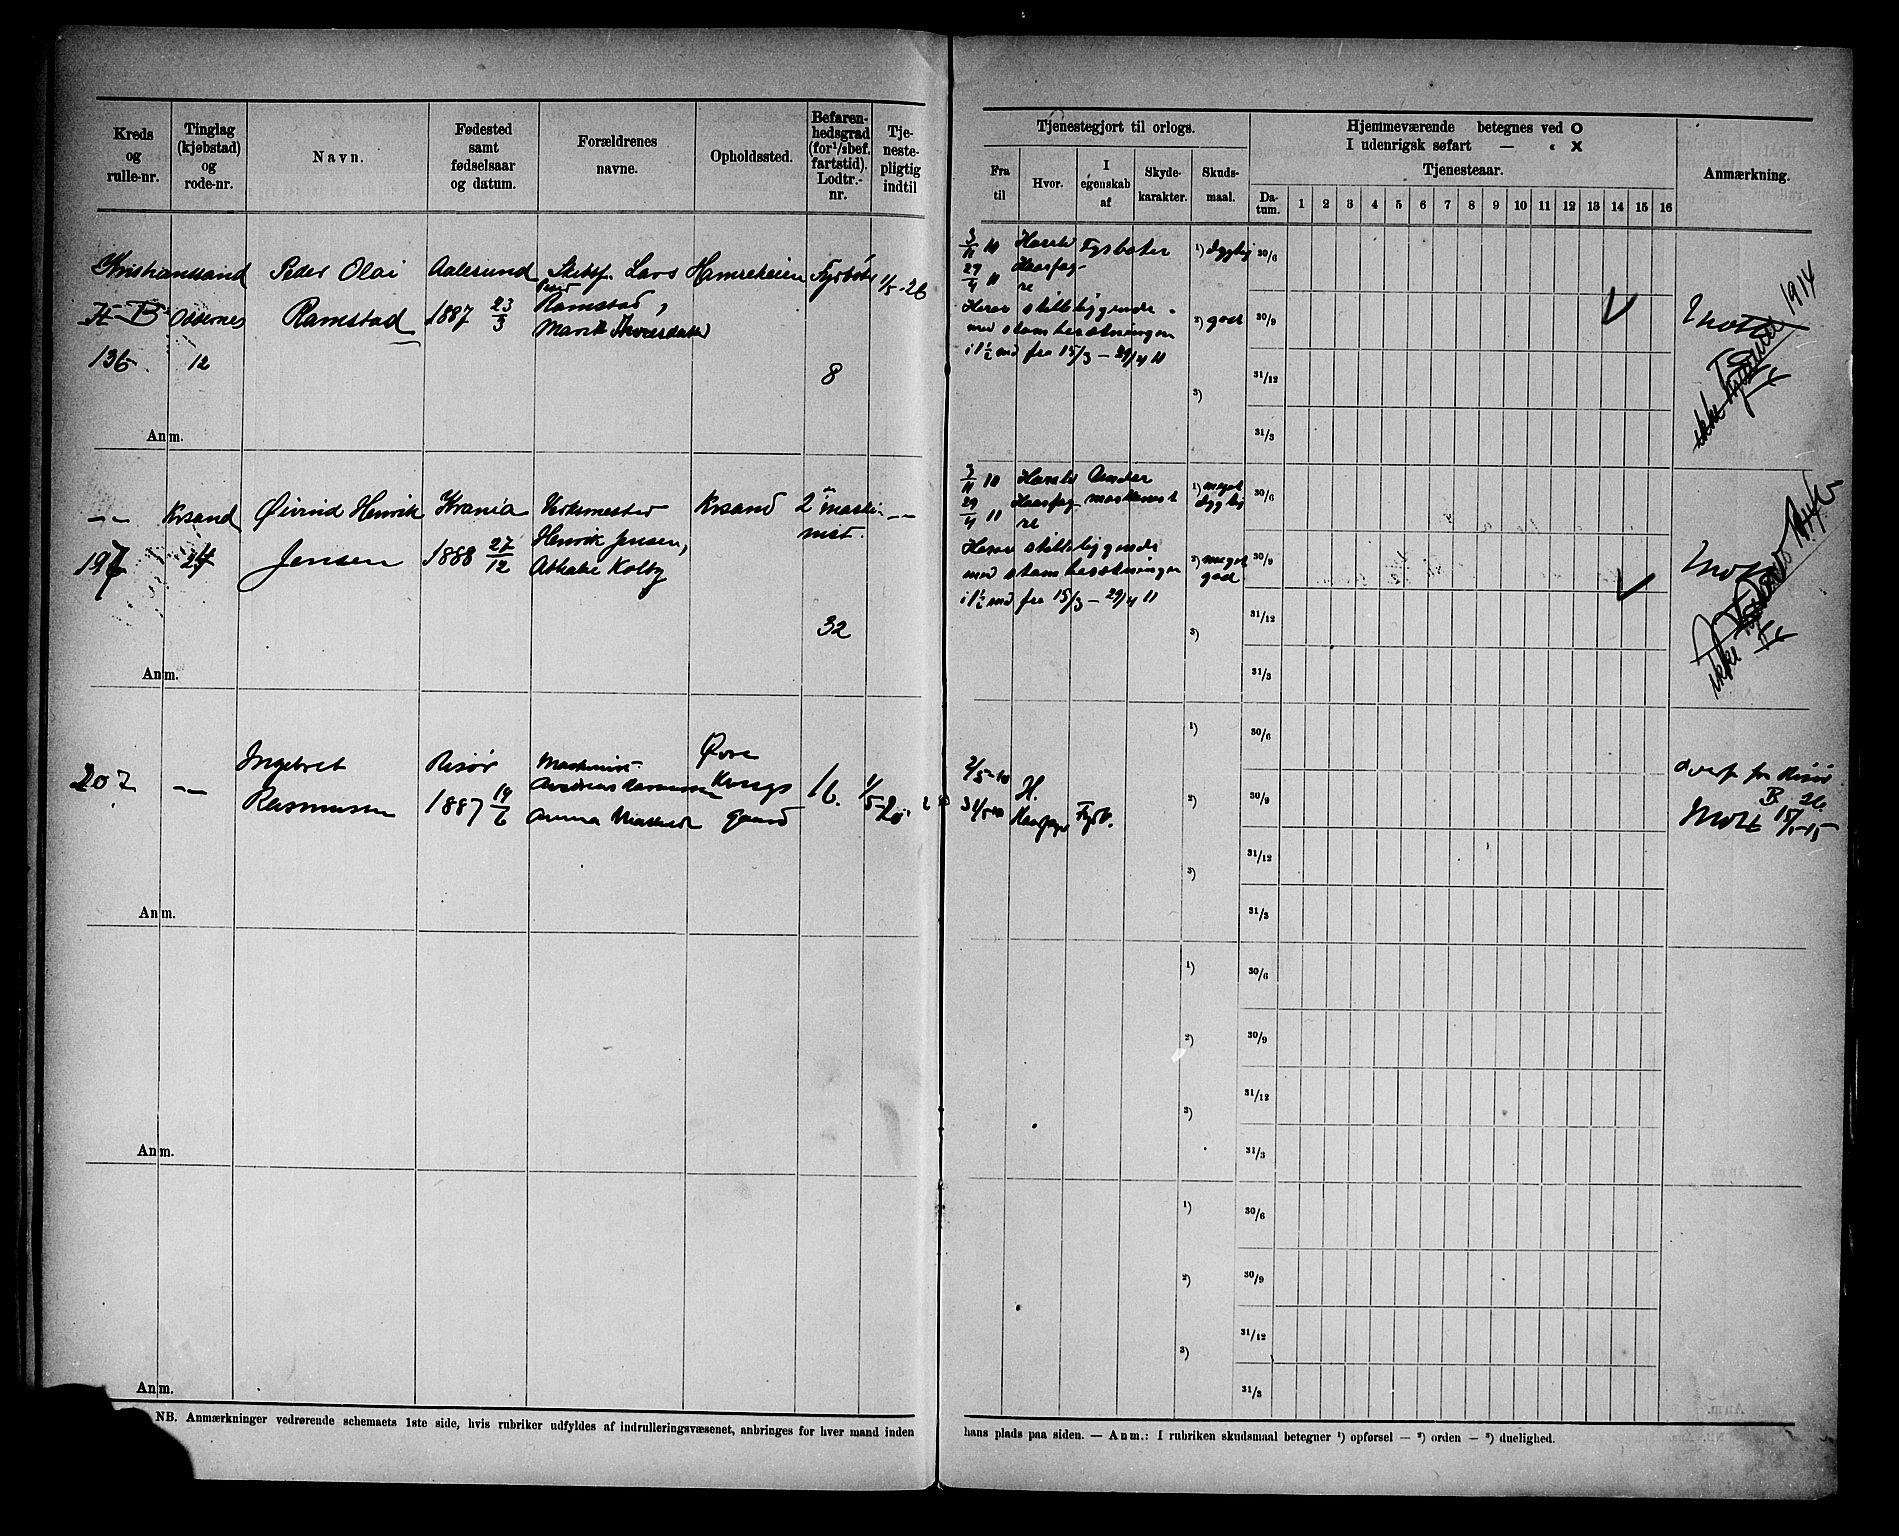 Kreds og rulle-nr.
Tinglag (kjøbstad) og rode-nr.
Navn.
Fødested samt fødselsaar og datum.
Forældrenes navne.
Opholdssted.
Befaren-hedsgrad (for ¹/₂bef. fartstid). Lodtr.-nr.
Tje-neste-pligtig indtil
Tjenestegjort til orlogs.
Fra til
Hvor.
I egenskab af
Skyde-karakter.
Skuds-maal.
Hjemmeværende betegnes ved O
I udenrigsk søfart — « X
Tjenesteaar.
Da-tum.
1 2 3 4 5 6 7 8 9 10 11 12 13 14 15 16
Anmærkning.
Kristianssand
B
136
12
Peder Olai
Ramstad
Aalesund
1887 23/3
Skibsf. Lars
Ramstad,
Fyrbøter
8
1/5-26
3/11 10
29/4 11
Harald
Haarfag-
re
Fyrbøter
Herav stilleliggende
med stambesætningen
i 1½ md fra 15/3 – 29/4 11
¹) dygtig
²) godt
³)
30/6
30/9
31/12
31/3
1914
ikke
Anm.
— " —
197
Krsand
24
Øivind Henrik
Jensen
Krania
1888 27/12
Verksmester
Henrik Jensen,
Athalie Kolby
Krsand
2 maski-
nist.
32
— " —
3/11 10
29/4 11
Harald
Haarfag-
re
Under
maskinist
Herav stilleliggende
med stambesætningen
i 1½ md fra 15/3 – 29/4 11
¹) meget
dygtig
²) meget
god
³)
30/6
30/9
31/12
31/3
ikke
Anm.
207
— " —
Ingebret
Rasmussen
Risør
1887 19/6
Maskinist
Andreas Rasmussen
Anna
Øvre
Kongs
gaard
16.
2/5-10
H.
Haarfagr
Fyrb.
¹)
²)
³)
30/6
30/9
31/12
31/3
overf. fra Risør
B. 26.
Anm.
¹)
²)
³)
30/6
30/9
31/12
31/3
Anm.
¹)
²)
³)
30/6
30/9
31/12
31/3
Anm.
NB. Anmærkninger vedrørende schemaets 1ste side, hvis rubriker udfyldes af indrulleringsvæsenet, anbringes for hver mand inden
hans plads paa siden. — Anm.: I rubriken skudsmaal betegner ¹) opførsel — ²) orden — ³) duelighed.